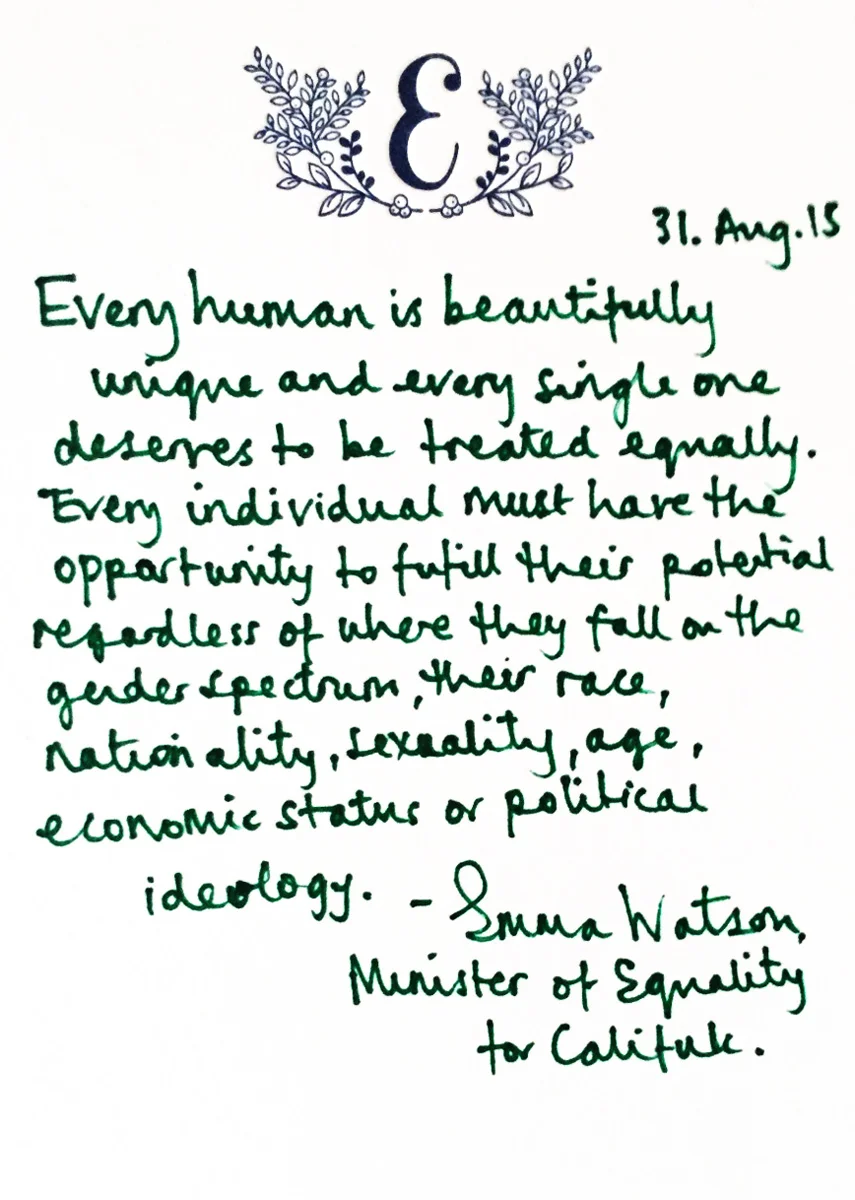 E
31. Aug.15
Every human is beautifully
unique and every single one
deserves to be treated equally.
Every individual must have the
opportunity to fufill their potential
regardless of where they fall on the
gender spectrum, their race,
nationality, sexuality, age,
economic status or political
ideology. - Emma Watson,
Minister of Equality
for Califuk.